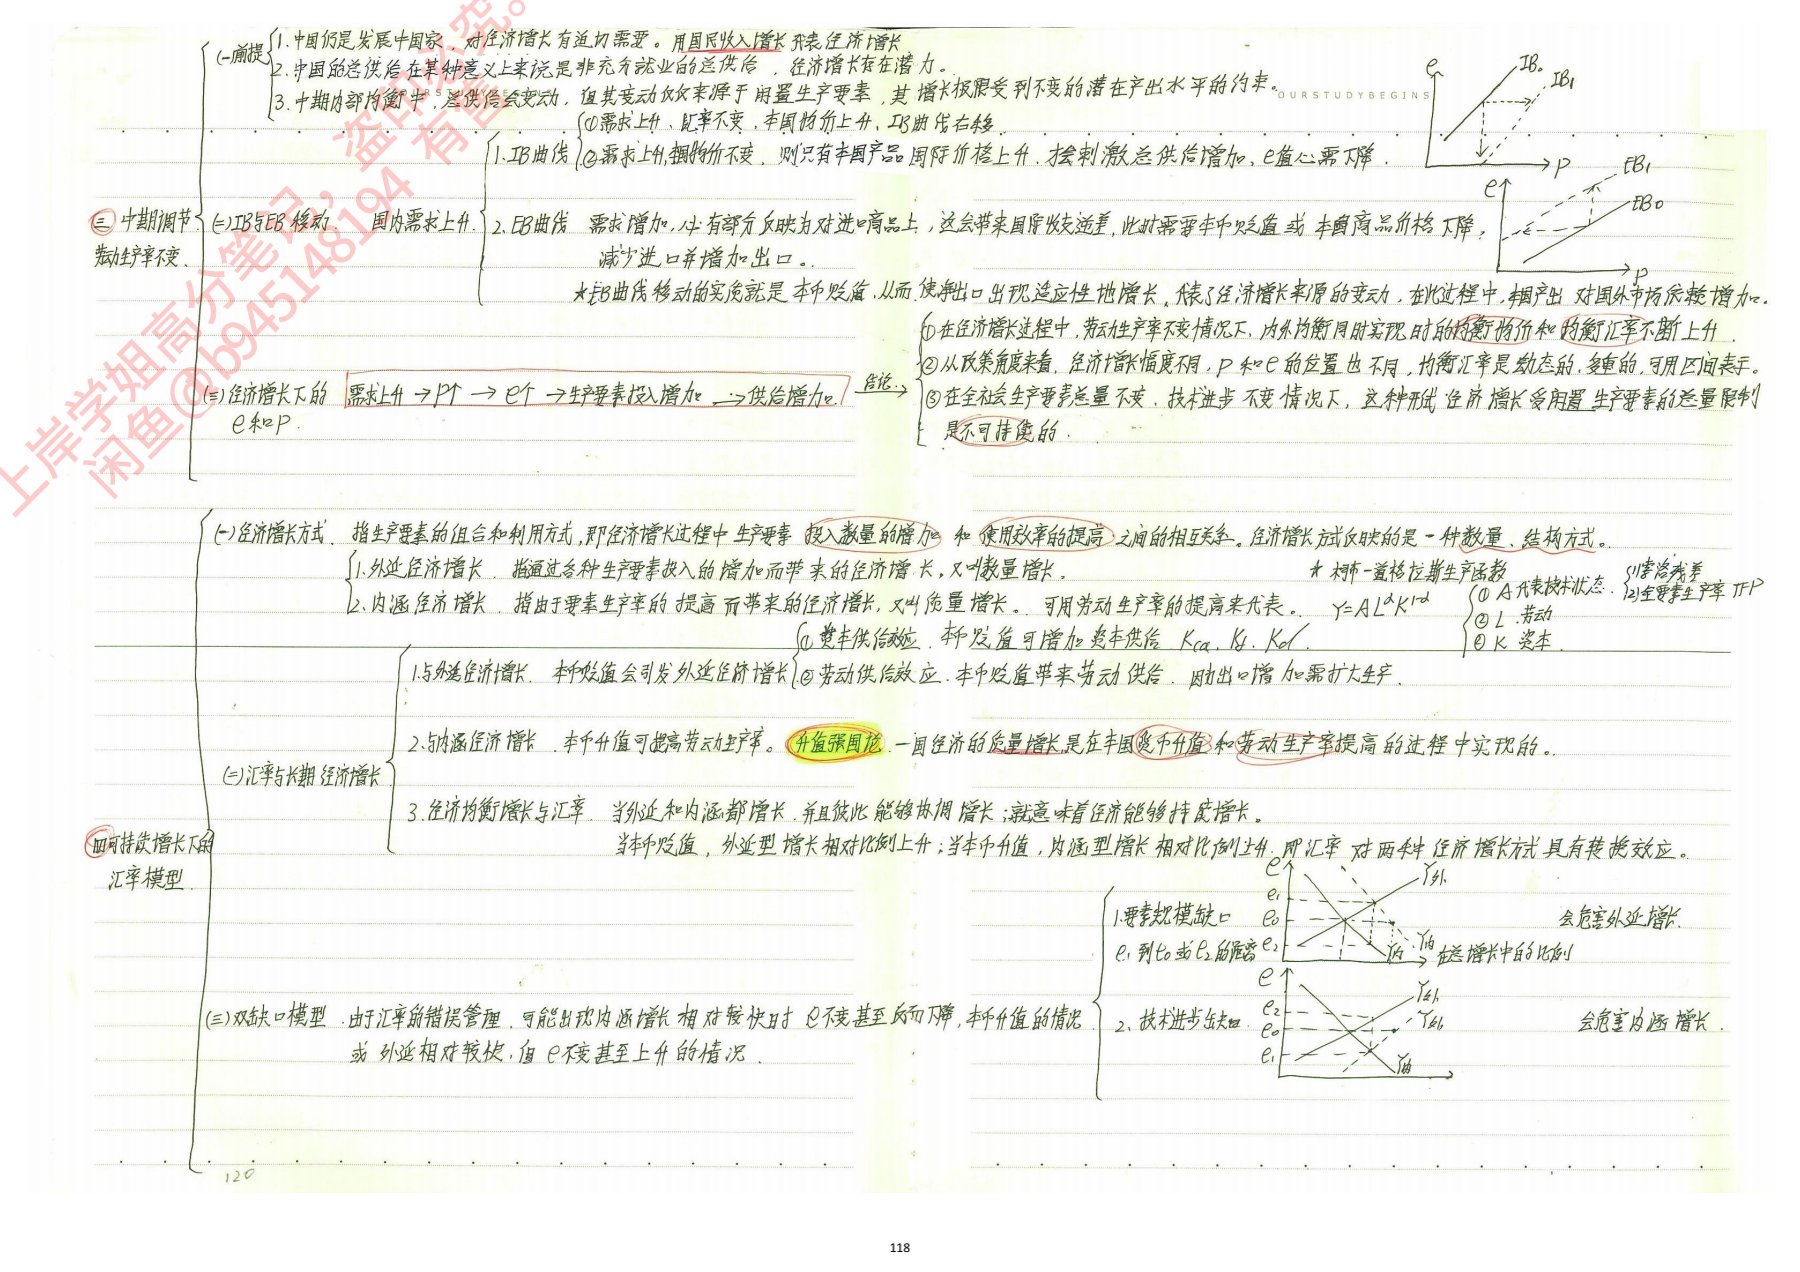 (一)前提
1.中国仍是发展中国家、对经济增长有迫切需要。用国民收入增长代表经济增长
2.中国的总供给在某种意义上来说是非充分就业的总供给，经济增长存在潜力。
3.中期内部均衡中，总供给会变动，但其变动仅仅来源于闲置生产要素，其增长极限受到不变的潜在产出水平的约束。
OURSTUDYBEGINS
三 中期调节
劳动生产率不变.
(二)IB与EB移动. 国内需求上升
1.IB曲线
①需求上升、汇率不变，本国物价上升、IB曲线右移.
②需求上升,物价不变，则只有本国产品国际价格上升，才会刺激总供给增加、e值必需下降.
2.EB曲线 需求增加，必有部分反映为对进口商品上，这会带来国际收支逆差，此时需要本币贬值或本国商品价格下降，
减少进口并增加出口。
★EB曲线移动的实质就是本币贬值，从而使净出口出现适应性地增长，代表了经济增长来源的变动，在此过程中，本国产出对国外市场依赖增加.
e IB₀ IB₁ P
e EB₁ EB₀ P
(三)经济增长下的
e和P.
需求上升→P↑→e↑→生产要素投入增加→供给增加.
结论:
①在经济增长过程中，劳动生产率不变情况下，内外均衡同时实现时的均衡物价和均衡汇率不断上升.
②从政策角度来看，经济增长幅度不同，P和e的位置也不同，均衡汇率是动态的，多重的，可用区间表示。
③在全社会生产要素总量不变，技术进步不变情况下，这种形式经济增长受闲置生产要素的总量限制
是不可持续的.
四可持续增长下的
汇率模型.
(一)经济增长方式. 指生产要素的组合和利用方式，即经济增长过程中生产要素投入数量的增加和使用效率的提高之间的相互关系。经济增长方式反映的是一种数量、结构方式。
1.外延经济增长. 指通过各种生产要素投入的增加而带来的经济增长，又叫数量增长.
2.内涵经济增长. 指由于要素生产率的提高而带来的经济增长，又叫质量增长。可用劳动生产率的提高来代表。
★柯布-道格拉斯生产函数
Y=ALᵅK¹⁻ᵅ
①A代表技术状态.
(1)索洛残差
(2)全要素生产率TFP
②L.劳动
③K 资本.
(二)汇率与长期经济增长
1.与外延经济增长. 本币贬值会引发外延经济增长
①资本供给效应. 本币贬值可增加资本供给 Kca、Kf、Kd.
②劳动供给效应. 本币贬值带来劳动供给. 因为出口增加需扩大生产.
2.与内涵经济增长. 本币升值可提高劳动生产率。升值强国论. 一国经济的质量增长是在本国货币升值和劳动生产率提高的过程中实现的。
3.经济均衡增长与汇率. 当外延和内涵都增长. 并且彼此能够协调增长；就意味着经济能够持续增长。
当本币贬值，外延型增长相对比例上升；当本币升值，内涵型增长相对比例上升. 即汇率对两种经济增长方式具有转换效应。
(三)双缺口模型. 由于汇率的错误管理，可能出现内涵增长相对较快时e不变甚至反而下降，本币升值的情况
或外延相对较快，但e不变甚至上升的情况.
1.要素规模缺口
e₁到e₀或e₂的距离
e e₁ e₀ e₂ Y外 Y内 Y内 在总增长中的比例
会危害外延增长.
2.技术进步缺口.
e e₂ e₀ e₁ Y外 Y外 Y内
会危害内涵增长.
120
上岸学姐高分笔记，盗印必究。
闲鱼@b945148194 有售
118